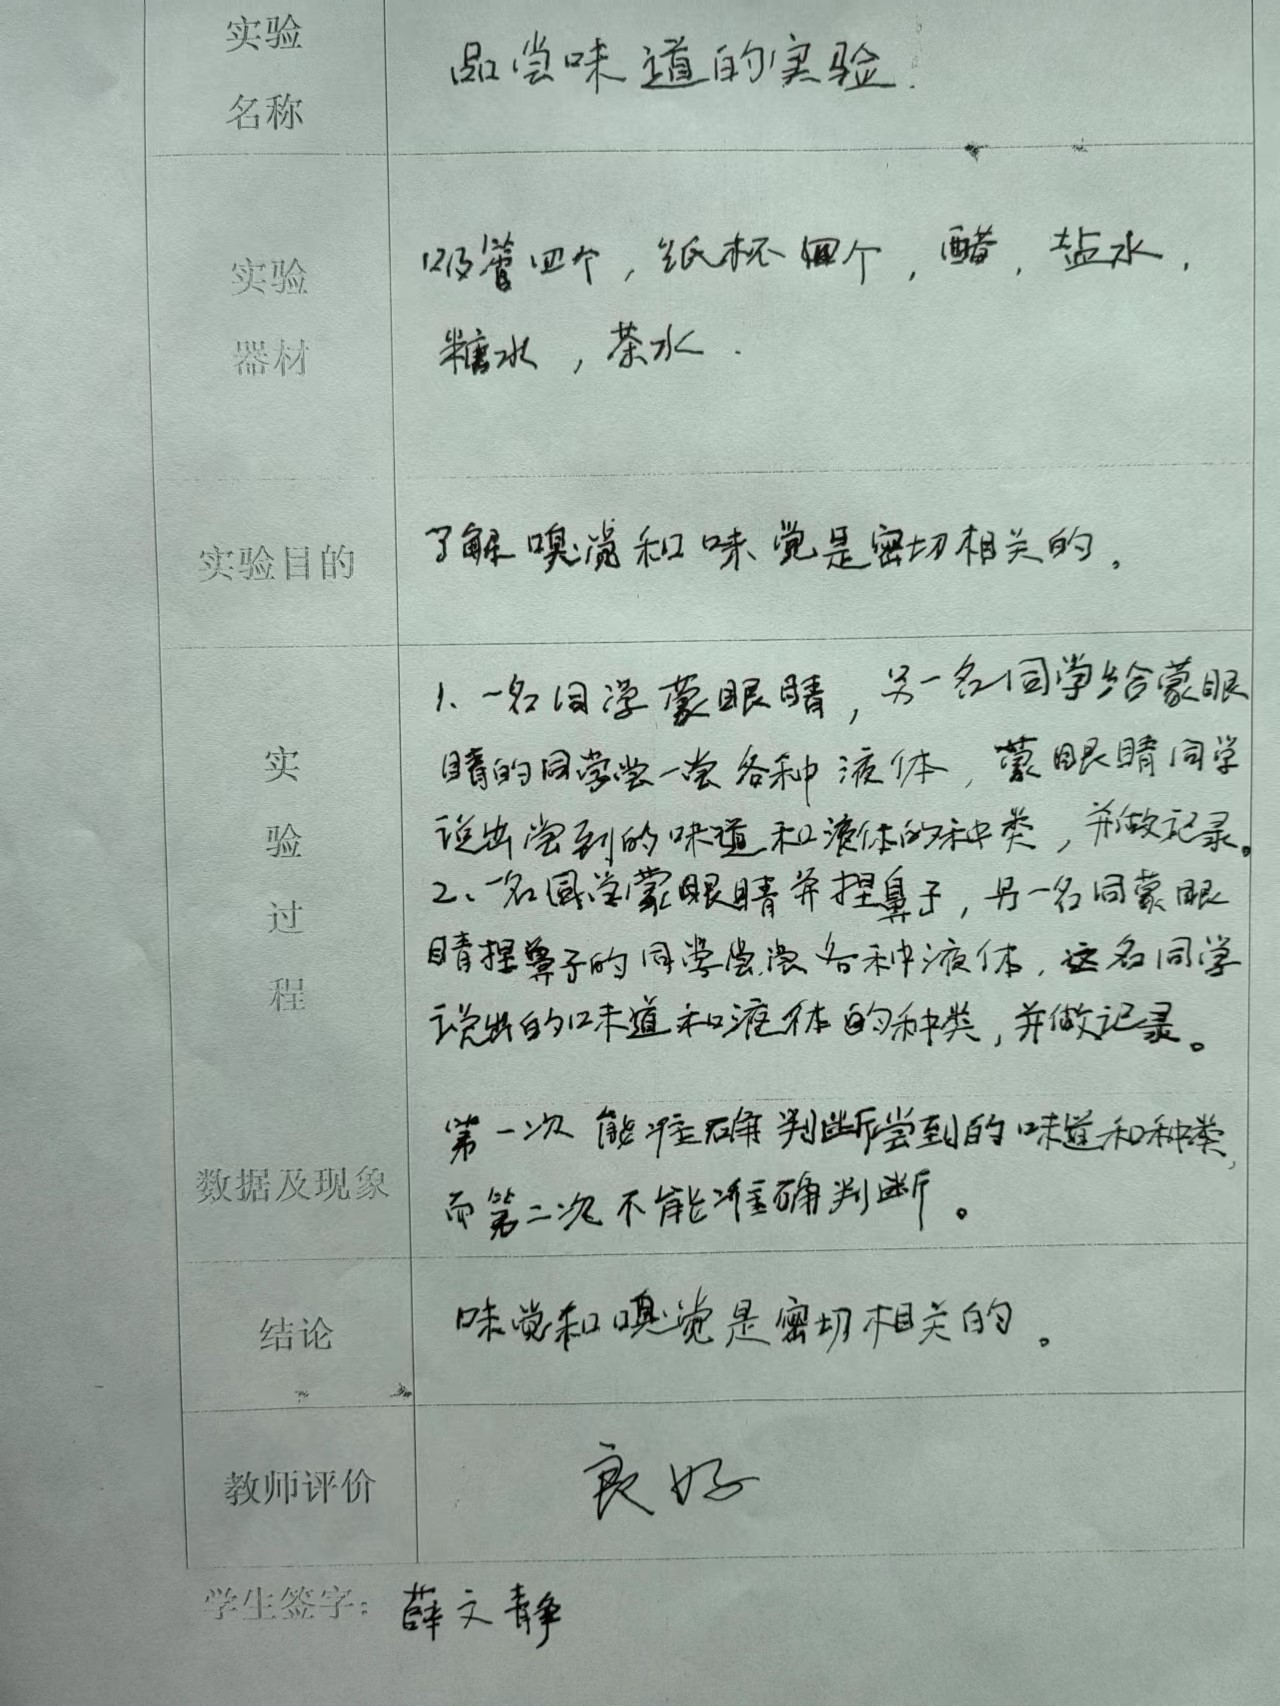 实验
名称
品尝味道的实验.
实验
器材
吸管四个，纸杯四个，醋，盐水，
糖水，茶水.
实验目的
了解嗅觉和味觉是密切相关的。
实
验
过
程
1、一名同学蒙眼睛，另一名同学给蒙眼
睛的同学尝一尝各种液体，蒙眼睛同学
说出尝到的味道和液体的种类，并做记录。
2、一名同学蒙眼睛并捏鼻子，另一名同蒙眼
睛捏鼻子的同学尝尝各种液体，这名同学
说出的味道和液体的种类，并做记录。
数据及现象
第一次能准确判断尝到的味道和种类，
而第二次不能准确判断。
结论
味觉和嗅觉是密切相关的。
教师评价
良好
学生签字：薛文静